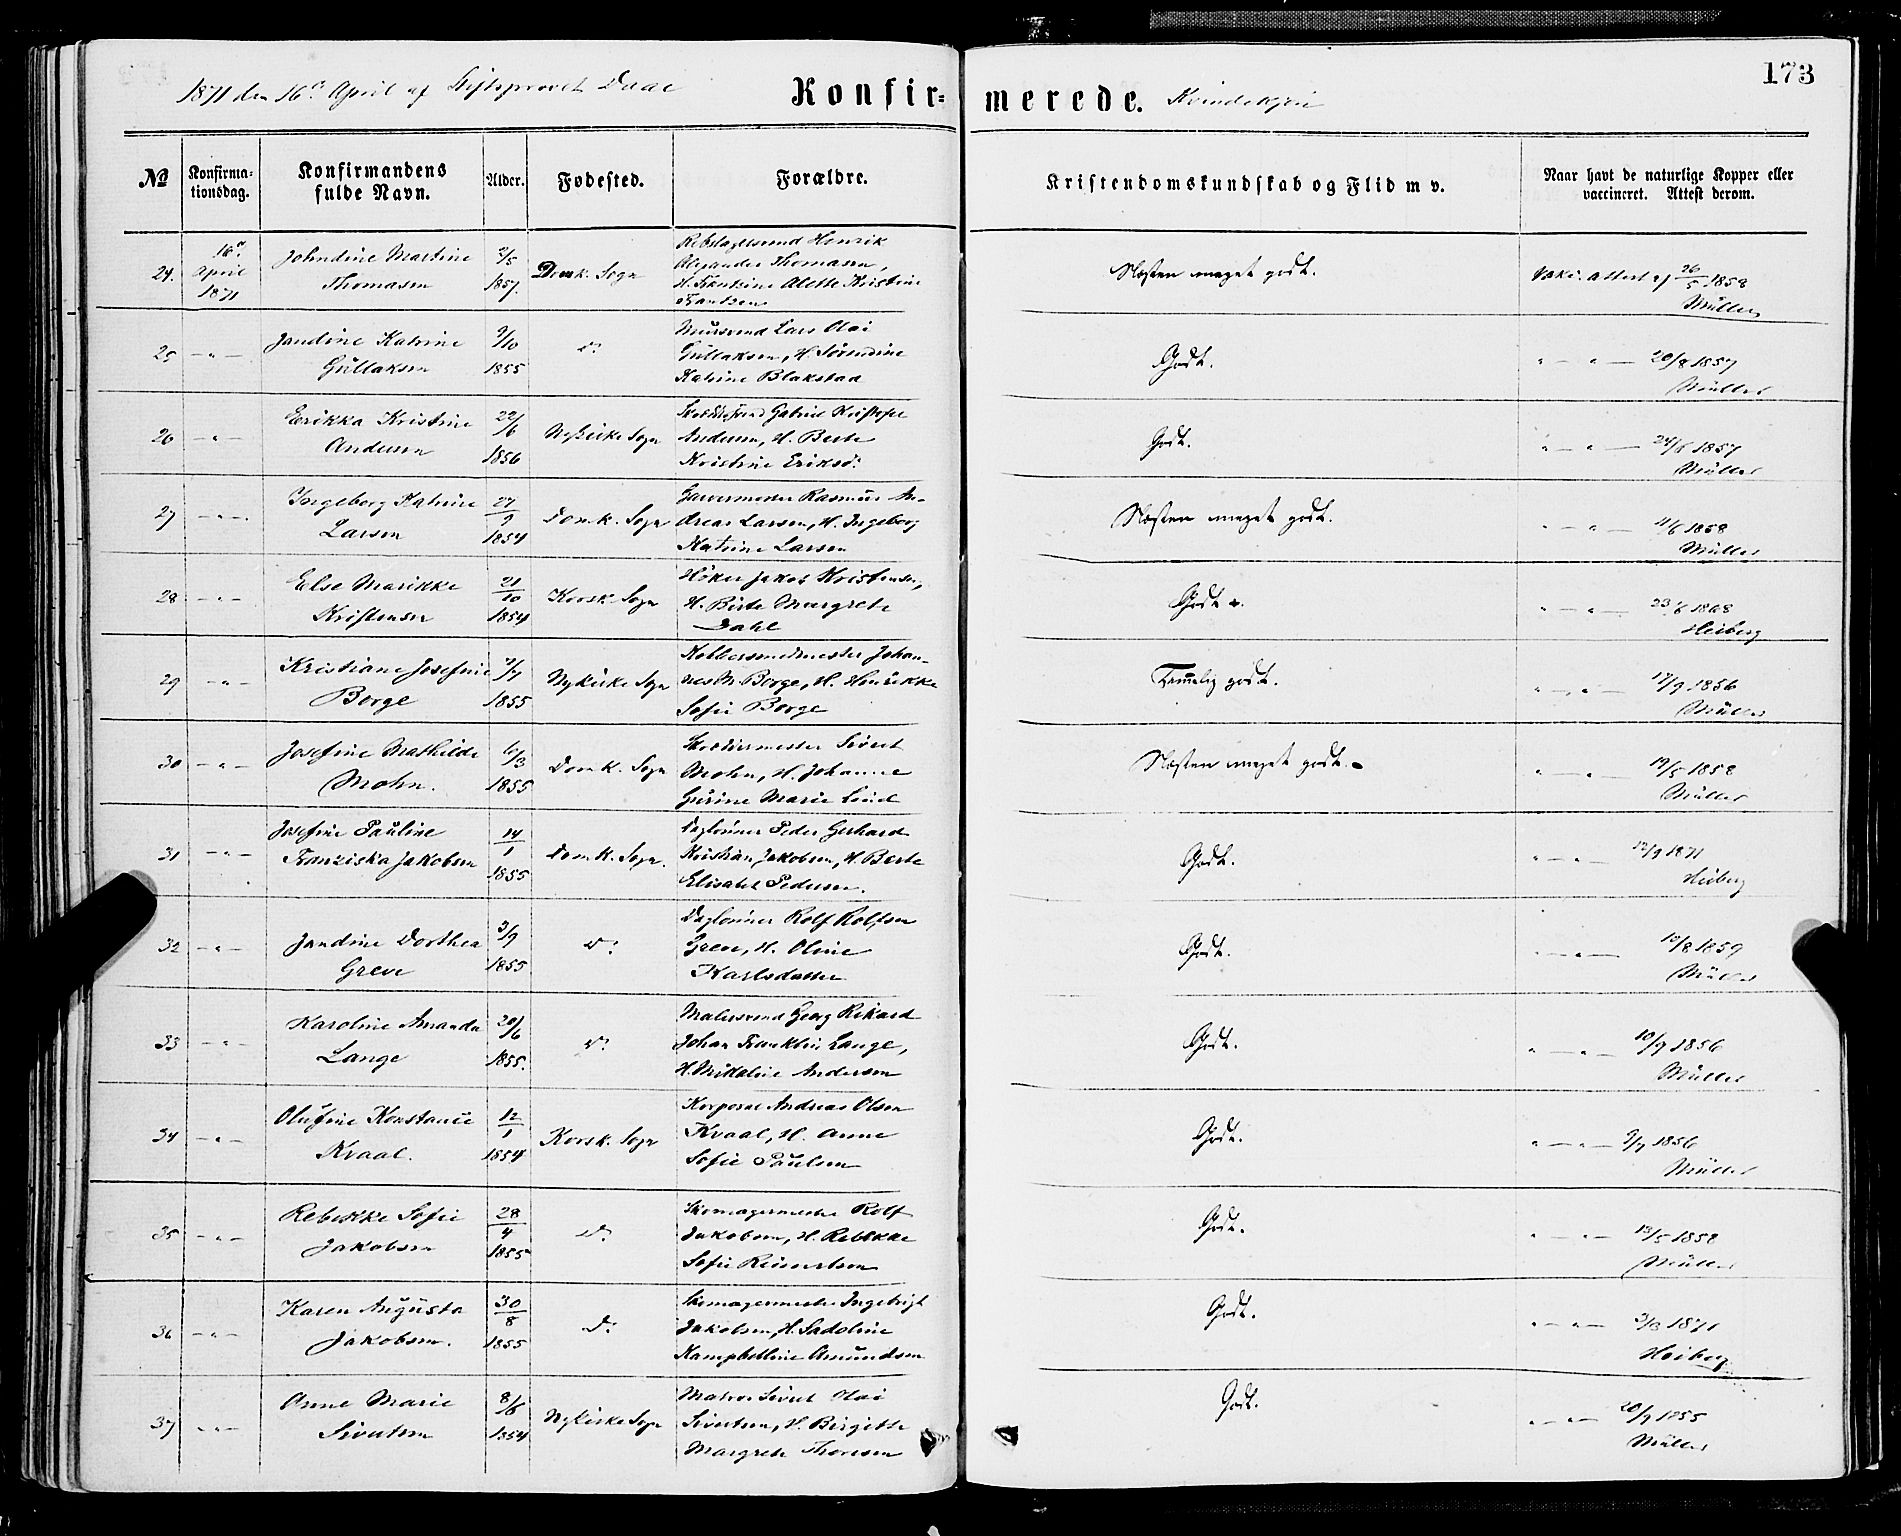 173
1871 den 16de April af Stiftsprovst Daae
Konfirmerede. Kvindekjøn
No Konfirmationsdag. Konfirmandens fulde Navn. Alder. Fødested. Forældre. Kristendomskundskab og Flid m v. Naar havt de naturlige Kopper eller vaccineret. Attest derom.
24. 16de April 1871
Johndine Martine
Thomasen
2/5 1857.
Domk. Sogn
Rebslagersvend Henrik
Alexander Thomasen,
H. Alette Kristine
Frantzen
Næsten meget godt.
Vaki. attest af 26/5 1858
Müller
25 – " –
Jandine Katrine
Gullaksen
9/10 1855
do
Mursvend Lars Olai
Gullaksen, H. Sørendine
Katrine Blakstad
Godt.
" – " – 20/8 1857
Müller
26 – " –
Erikka Kristine
Andersen
22/6 1856
Nykirke Sogn
Gabriel Kristofer
Andersen, H. Berte
Kristine Eriksd:
Godt.
" – " – 24/6 1857
Müller
27 – " –
Ingeborg Katrine
Larsen
27/9 1854
Domk. Sogn
Garvermester Rasmus An-
dreas Larsen, H. Ingeborg
Katrine Larsen
Næsten meget godt.
" – " – 11/6 1858
Müller
28 – " –
Else Marikke
Kristensen
21/10 1854
Korsk. Sogn
Høker Jakob Kristensen,
H. Birte Margrete
Dahl
Godt.
" – " – 23/6 1868
Heiberg
29 – " –
Kristiane Josefine
Borge
7/7 1855
Nykirke Sogn
Kobbersmedmester Johan-
nes M. Borge, H. Henrikke
Sofie Borge
Temmelig godt.
" – " – 17/9 1856
Müller
30 – " –
Josefine Mathilde
Mohn.
6/3 1855
Domk. Sogn
Skræddermester Sivert
Mohn, H. Johanne
Gurine Marie Lind
Næsten meget godt.
" – " – 19/5 1858
Müller
31 – " –
Josefine Pauline
Franziska Jakobsen
14/1 1855
Domk. Sogn.
Dagløinner Peder Gerhard
Kristian Jakobsen, H. Berte
Elisabet Pedersen.
Godt.
" – " – 12/9 1871
Heiberg
32 – " –
Jandine Dorthea
Greve
3/9 1855
do
Dagløinner Rolf Rolfsen
Greve, H. Oline
Karlsdatter
Godt.
" – " – 18/8 1859
Müller
33 – " –
Karoline Amanda
Lange
20/6 1855.
do
Malersvend Georg Rikard
Johan Franklin Lange,
H. Mikaline Andersen
Godt.
" – " – 10/9 1856
Müller
34 – " –
Olufine Konstance
Kraal.
12/1 1854
Korsk. Sogn
Korporal Andreas Olsen
Kraal, H. Anne
Sofie Paulsen
Godt.
" – " – 9/7 1856
Müller
35 – " –
Rebekke Sofie
Jakobsen
28/4 1855
do
Skomagermester Rolf
Jakobsen, H. Rebekka
Sofie Reinertsen
Godt.
" – " – 13/5 1858
Müller
36 – " –
Karen Augusta
Jakobsen.
30/8 1855
do
Skomagermester Ingebrigt
Jakobsen, H. Sadoline
Kampbelline Amundsen
Godt.
" – " – 3/3 1871
Heiberg
37 – " –
Anne Marie
Sivertsen
8/6 1854
Nykirke Sogn
Matros Sivert Olai
Sivertsen, H. Birgitte
Margrete Thoresen
Godt.
" – " – 20/9 1855
Müller